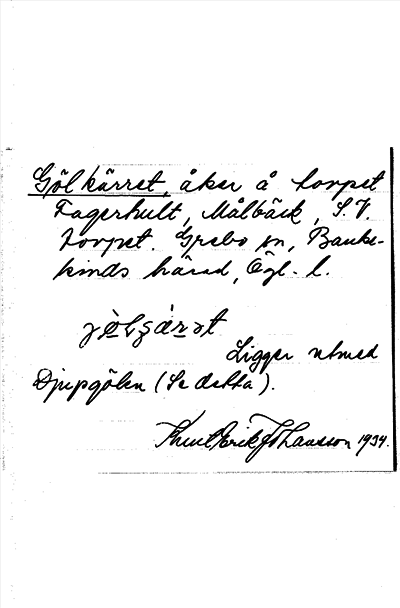 Gölkärret, åker å torpet
Fagerhult, Målbäck, S.V.
torpet. Grebo sn, Banke-
kinds härad, Ögl. l.
Ligger utmed
Djupgölen (Se detta).
Knut Erik Johansson 1934.